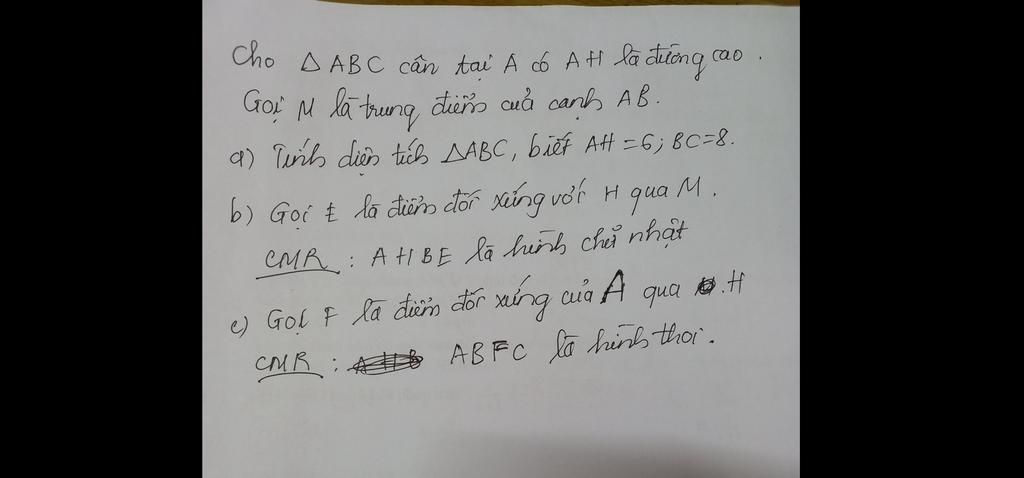 Cho △ABC cân tại A có AH là đường cao.
Gọi M là trung điểm của cạnh AB.
a) Tính diện tích △ABC, biết AH = 6; BC = 8.
b) Gọi E là điểm đối xứng với H qua M.
CMR : AHBE là hình chữ nhật
c) Gọi F là điểm đối xứng của A qua H
CMR : ABFC là hình thoi.